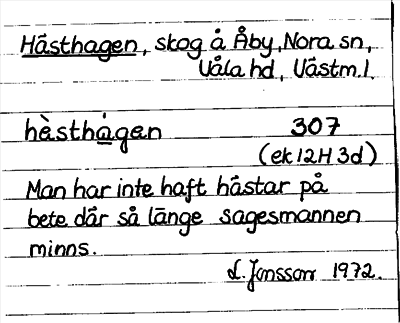 Hästhagen, skog å Åby, Nora sn,
Våla hd, Västm.l.
hὲsthágen 307
(ek 12H 3d)
Man har inte haft hästar på
bete där så länge sagesmannen
minns.
L. Jonsson 1972.